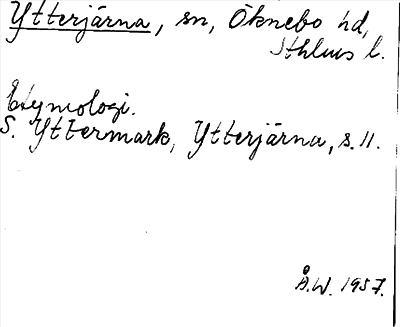 Ytterjärna, sn, Öknebo hd,
Sthlms l.
Etymologi.
S. Yttermark, Ytterjärna, s. 11.
Å.W. 1957.